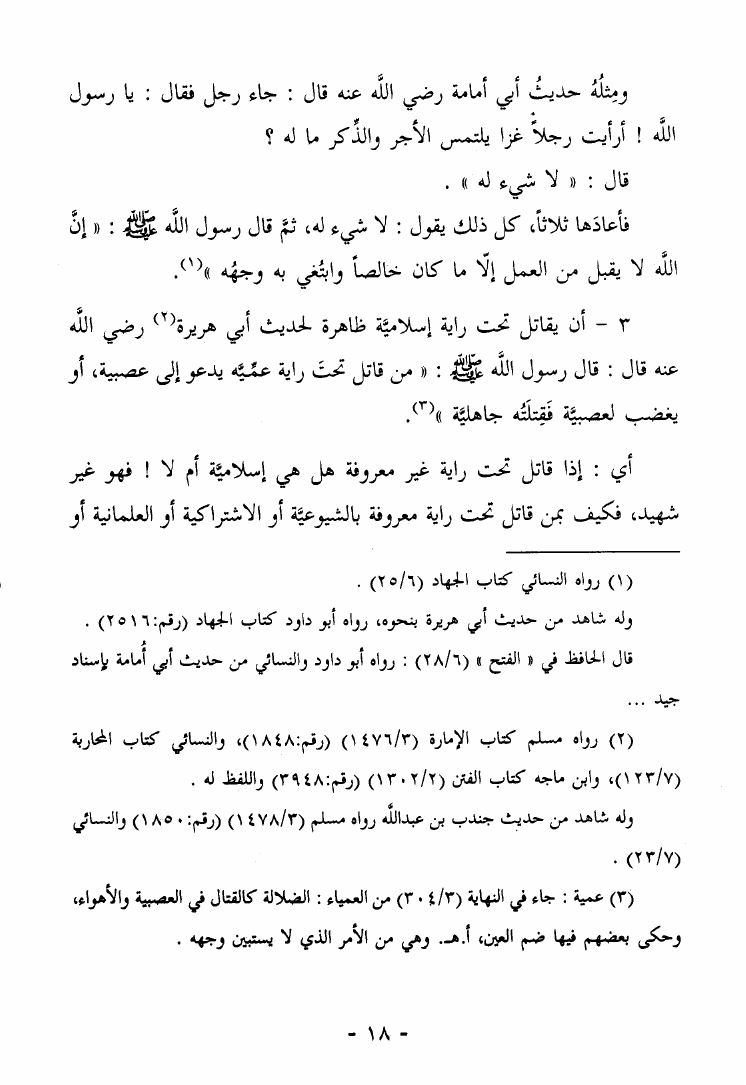 ومِثلُهُ حديثُ أبي أمامة رضي اللَّه عنه قال : جاء رجل فقال : يا رسول
اللَّه ! أرأيت رجلاً غزا يلتمس الأجر والذِّكر ما له ؟
قال : « لا شيء له » .
فأعادَها ثلاثاً، كل ذلك يقول : لا شيء له، ثمَّ قال رسول اللَّه ﷺ : « إنَّ
اللَّه لا يقبل من العمل إلّا ما كان خالصاً وابتُغي به وجهُه »(١).
٣ - أن يقاتل تحت راية إسلاميَّة ظاهرة لحديث أبي هريرة(٢) رضي اللَّه
عنه قال : قال رسول اللَّه ﷺ : « من قاتل تحتَ راية عمِّيَّه يدعو إلى عصبية، أو
يغضب لعصبيَّة فَقِتلَتُه جاهليَّة »(٣).
أي : إذا قاتل تحت راية غير معروفة هل هي إسلاميَّة أم لا ! فهو غير
شهيد، فكيف بمن قاتل تحت راية معروفة بالشيوعيَّة أو الاشتراكية أو العلمانية أو
(١) رواه النسائي كتاب الجهاد (٢٥/٦) .
وله شاهد من حديث أبي هريرة بنحوه، رواه أبو داود كتاب الجهاد (رقم:٢٥١٦) .
قال الحافظ في « الفتح » (٢٨/٦) : رواه أبو داود والنسائي من حديث أبي أُمامة بإسناد
جيد ...
(٢) رواه مسلم كتاب الإمارة (١٤٧٦/٣) (رقم:١٨٤٨)، والنسائي كتاب المحاربة
(١٢٣/٧)، وابن ماجه كتاب الفتن (١٣٠٢/٢) (رقم:٣٩٤٨) واللفظ له .
وله شاهد من حديث جندب بن عبداللَّه رواه مسلم (١٤٧٨/٣) (رقم:١٨٥٠) والنسائي
(٢٣/٧) .
(٣) عمية : جاء في النهاية (٣٠٤/٣) من العمياء : الضلالة كالقتال في العصبية والأهواء،
وحكى بعضهم فيها ضم العين، أ.هـ. وهي من الأمر الذي لا يستبين وجهه .
- ١٨ -